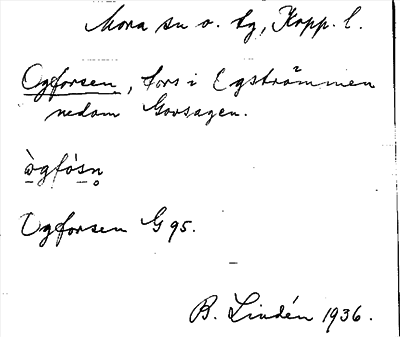 Mora sn o. tg, Kopp. l.
Ogforsen, fors i Ogströmmen
nedom Govsagen.
ògfósn̥
Ogforsen G 95.
B. Lindén 1936.